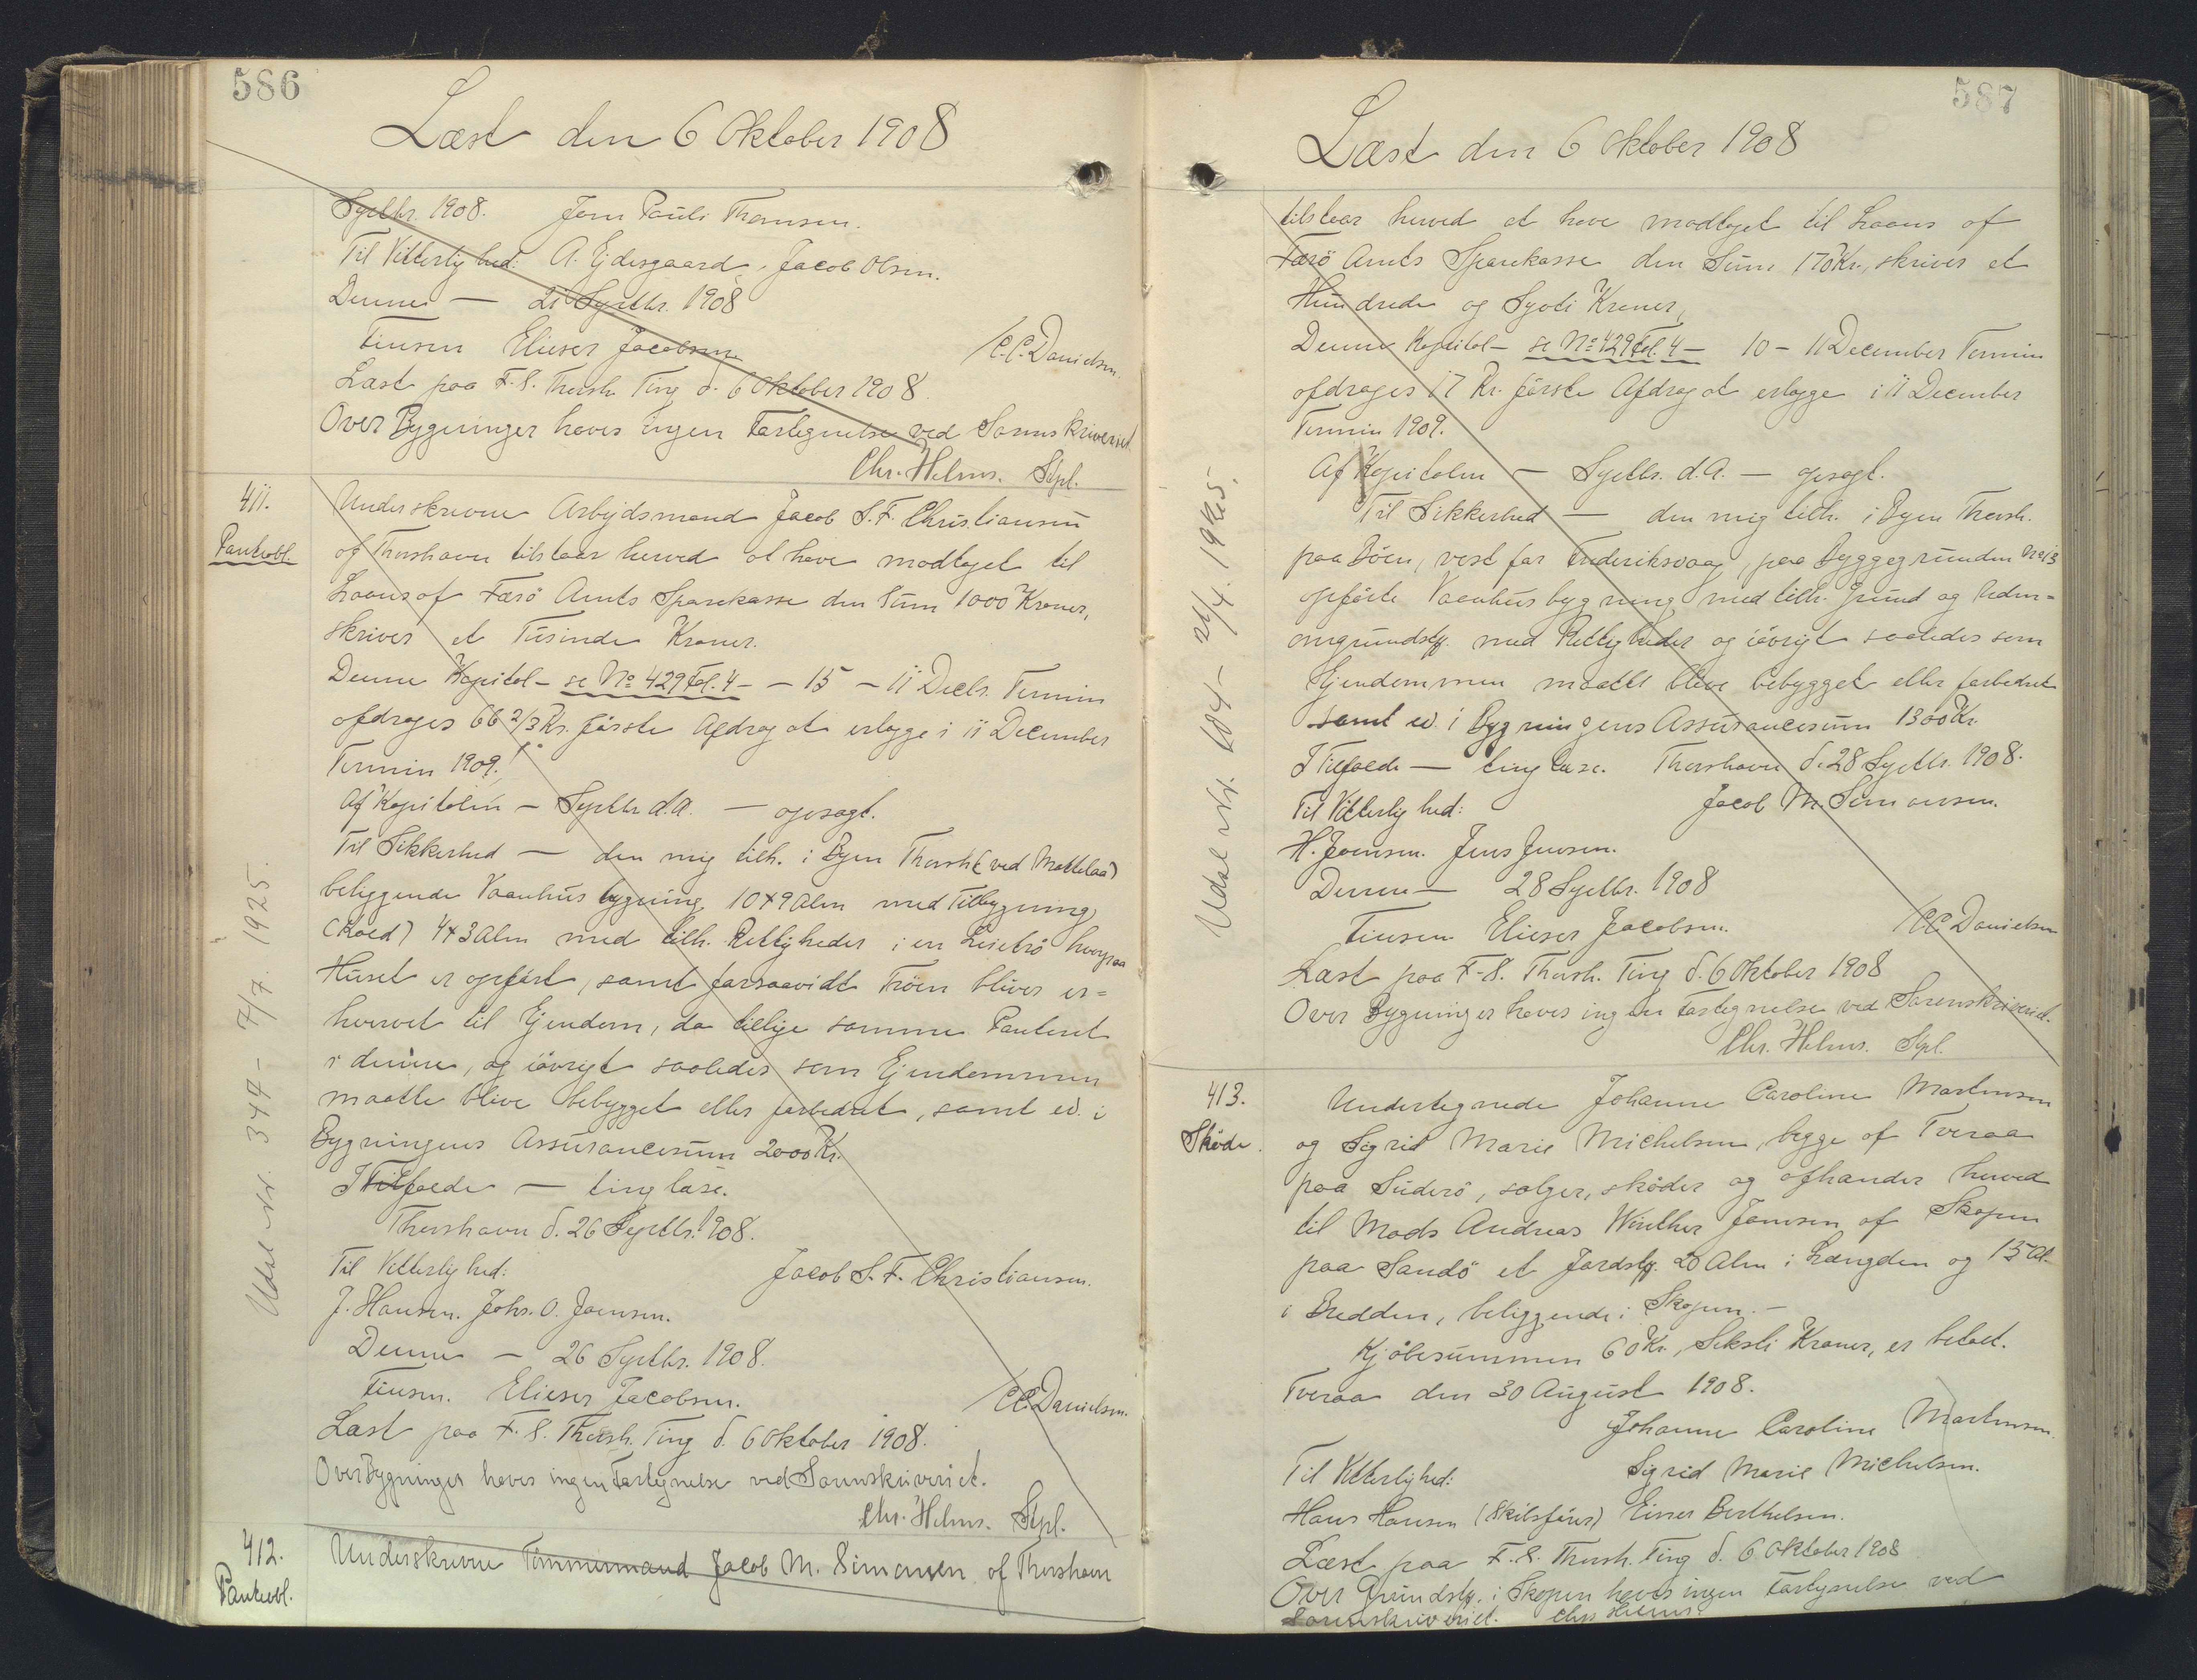 586
Læst den 6 Oktober 1908
Septbr. 1908. Jens Pauli Thomsen.
Til Vitterlighed: A. Ejdesgaard. Jacob Olsen.
Denne — 21 Septbr. 1908
Finsen Elieser Jacobsen /C.C. Danielsen.
Læst paa F.S. Thorsh. Ting d. 6 Oktober 1908.
Over Bygninger haves ingen Fortegnelse ved Sorenskriveriet.
Chr. Helms. Stpl.
411.
Panteobl.
Underskrevne Arbejdsmand Jacob S. F. Christiansen
af Thorshavn tilstaar herved at have modtaget til
Laans af Færö Amts Sparekasse den Sum 1000 Kroner,
skriver et Tusinde Kroner.
Denne Kapital - se No 429 Fol. 4 - - 15 - 11 Decbr. Termin
afdrages 66 2/3 Kr. første Afdrag at erlægge i 11 December
Termin 1909.
Af Kapitalen - Septbr. d.A. — opsagt.
Til Sikkerhed — den mig tilh. i Byen Thorsh. (ved Mattalaa)
beliggende Vaanhusbygning 10 x 9 Alen med Tilbygning
(Roed) 4x3 Alen med tilh. Rettigheder i en Leietrö hvorpaa
Huset er opført, samt forsaavidt Tröen bliver er=
hvervet til Ejendom, da tillige samme Panteret
i denne, og iövrigt saaledes som Ejendommen
maatte blive bebygget eller forbedret, samt ed. i
Bygningens Assurancesum 2000 Kr.
I Tilfælde — tinglæse.
Thorshavn d. 26 Septbr. 1908.
Til Vitterlighed: Jacob S. F. Christiansen.
J. Hansen. Johs. O. Joensen.
Denne — 26 Septbr. 1908.
Finsen. Elieser Jacobsen. /C.C. Danielsen.
Læst paa F.S. Thorsh. Ting d. 6 Oktober 1908.
Over Bygninger haves ingen Fortegnelse ved Sorenskriveriet.
Chr. Helms. Stpl.
Udsl. Nr. 344 - 7/7. 1925.
412.
Panteobl.
Underskrevne Tömmermand Jacob M. Simonsen af Thorshavn
587
Læst den 6 Oktober 1908
tilstaar herved at have modtaget til Laans af
Færö Amts Sparekasse den Sum 170 Kr., skriver et
Hundrede og Syvti Kroner,
Denne Kapital - se No 429 Fol. 4 - 10 - 11 December Termin
afdrages 17 Kr. første Afdrag at erlægge i 11 December
Termin 1909.
Af Kapitalen — Septbr. d.A. — opsagt.
Til Sikkerhed — den mig tilh. i Byen Thorsh.
paa Böen, vest for Frederiksvaag, paa Byggegrunden
opførte Vaanhusbygning med tilh. Grund og Uden=
omgrundstk. med Rettigheder og iövrigt saaledes som
Ejendommen maatte blive bebygget eller forbedret
samt ed. i Bygningens Assurancesum 1300 Kr.
I Tilfælde — tinglæse. Thorshavn d. 28 Septbr. 1908.
Til Vitterlighed: Jacob M. Simonsen.
H. Joensen. Jens Jensen.
Denne — 28 Septbr. 1908
Finsen Elieser Jacobsen. /C.C. Danielsen
Læst paa F.S. Thorsh. Ting d. 6 Oktober 1908
Over Bygninger haves ingen Fortegnelse ved Sorenskriveriet.
Chr. Helms. Stpl.
413.
Sköde.
Undertegnede Johanne Caroline Mortensen
og Sigrid Marie Michelsen, begge af Tveraa
paa Suderö, sælger, sköder og afhænder herved
til Mads Andreas Winther Joensen af Skopen
paa Sandö et Jordstk. 20 Alen i Længden og 15 Al.
i Bredden, beliggende i Skopun. -
Kjöbesummen 60 Kr., Seksti Kroner, er betalt.
Tveraa den 30 August 1908.
Johanne Caroline Mortensen.
Til Vitterlighed: Sigrid Marie Michelsen.
Hans Hansen (Skibsfører) Einer Berthelsen.
Læst paa F.S. Thorsh. Ting d. 6 Oktober 1908
Over Grundstk. i Skopen haves ingen Fortegnelse ved
Sorenskriveriet. Chr. Helms.